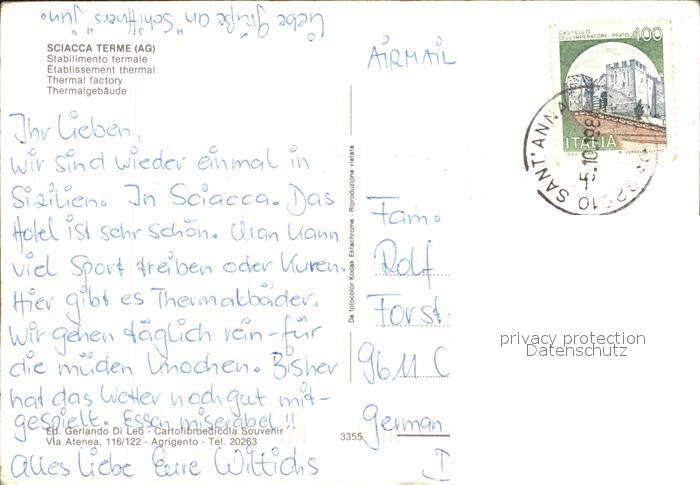 Liebe Grüße an Schiffners jun.
SCIACCA TERME (AG)
Stabilimento termale
Établissement thermal
Thermal factory
Thermalgebäude
Ihr Lieben,
wir sind wieder einmal in
Sizilien. In Sciacca. Das
Hotel ist sehr schön. Man kann
viel Sport treiben oder Kuren.
Hier gibt es Thermalbäder.
Wir gehen täglich rein-für
die müden Knochen. Bisher
hat das Wetter noch gut mit-
gespielt. Essen miserabel!!
Ed. Gerlando Di Leo - Cartolibroedicola Souvenir
Via Atenea, 116/122 - Agrigento - Tel. 20263
Alles Liebe Eure Wittichs
Da fotocolor Kodak Ektachrome - Riproduzione vietata
3355
AIRMAIL
CASTELLO
DELL'IMPERATORE - PRATO 400
ITALIA
92010 SANT'ANNA
-5.10
Fam.
Rolf
Forst
9611 C
German
D
privacy protection
Datenschutz